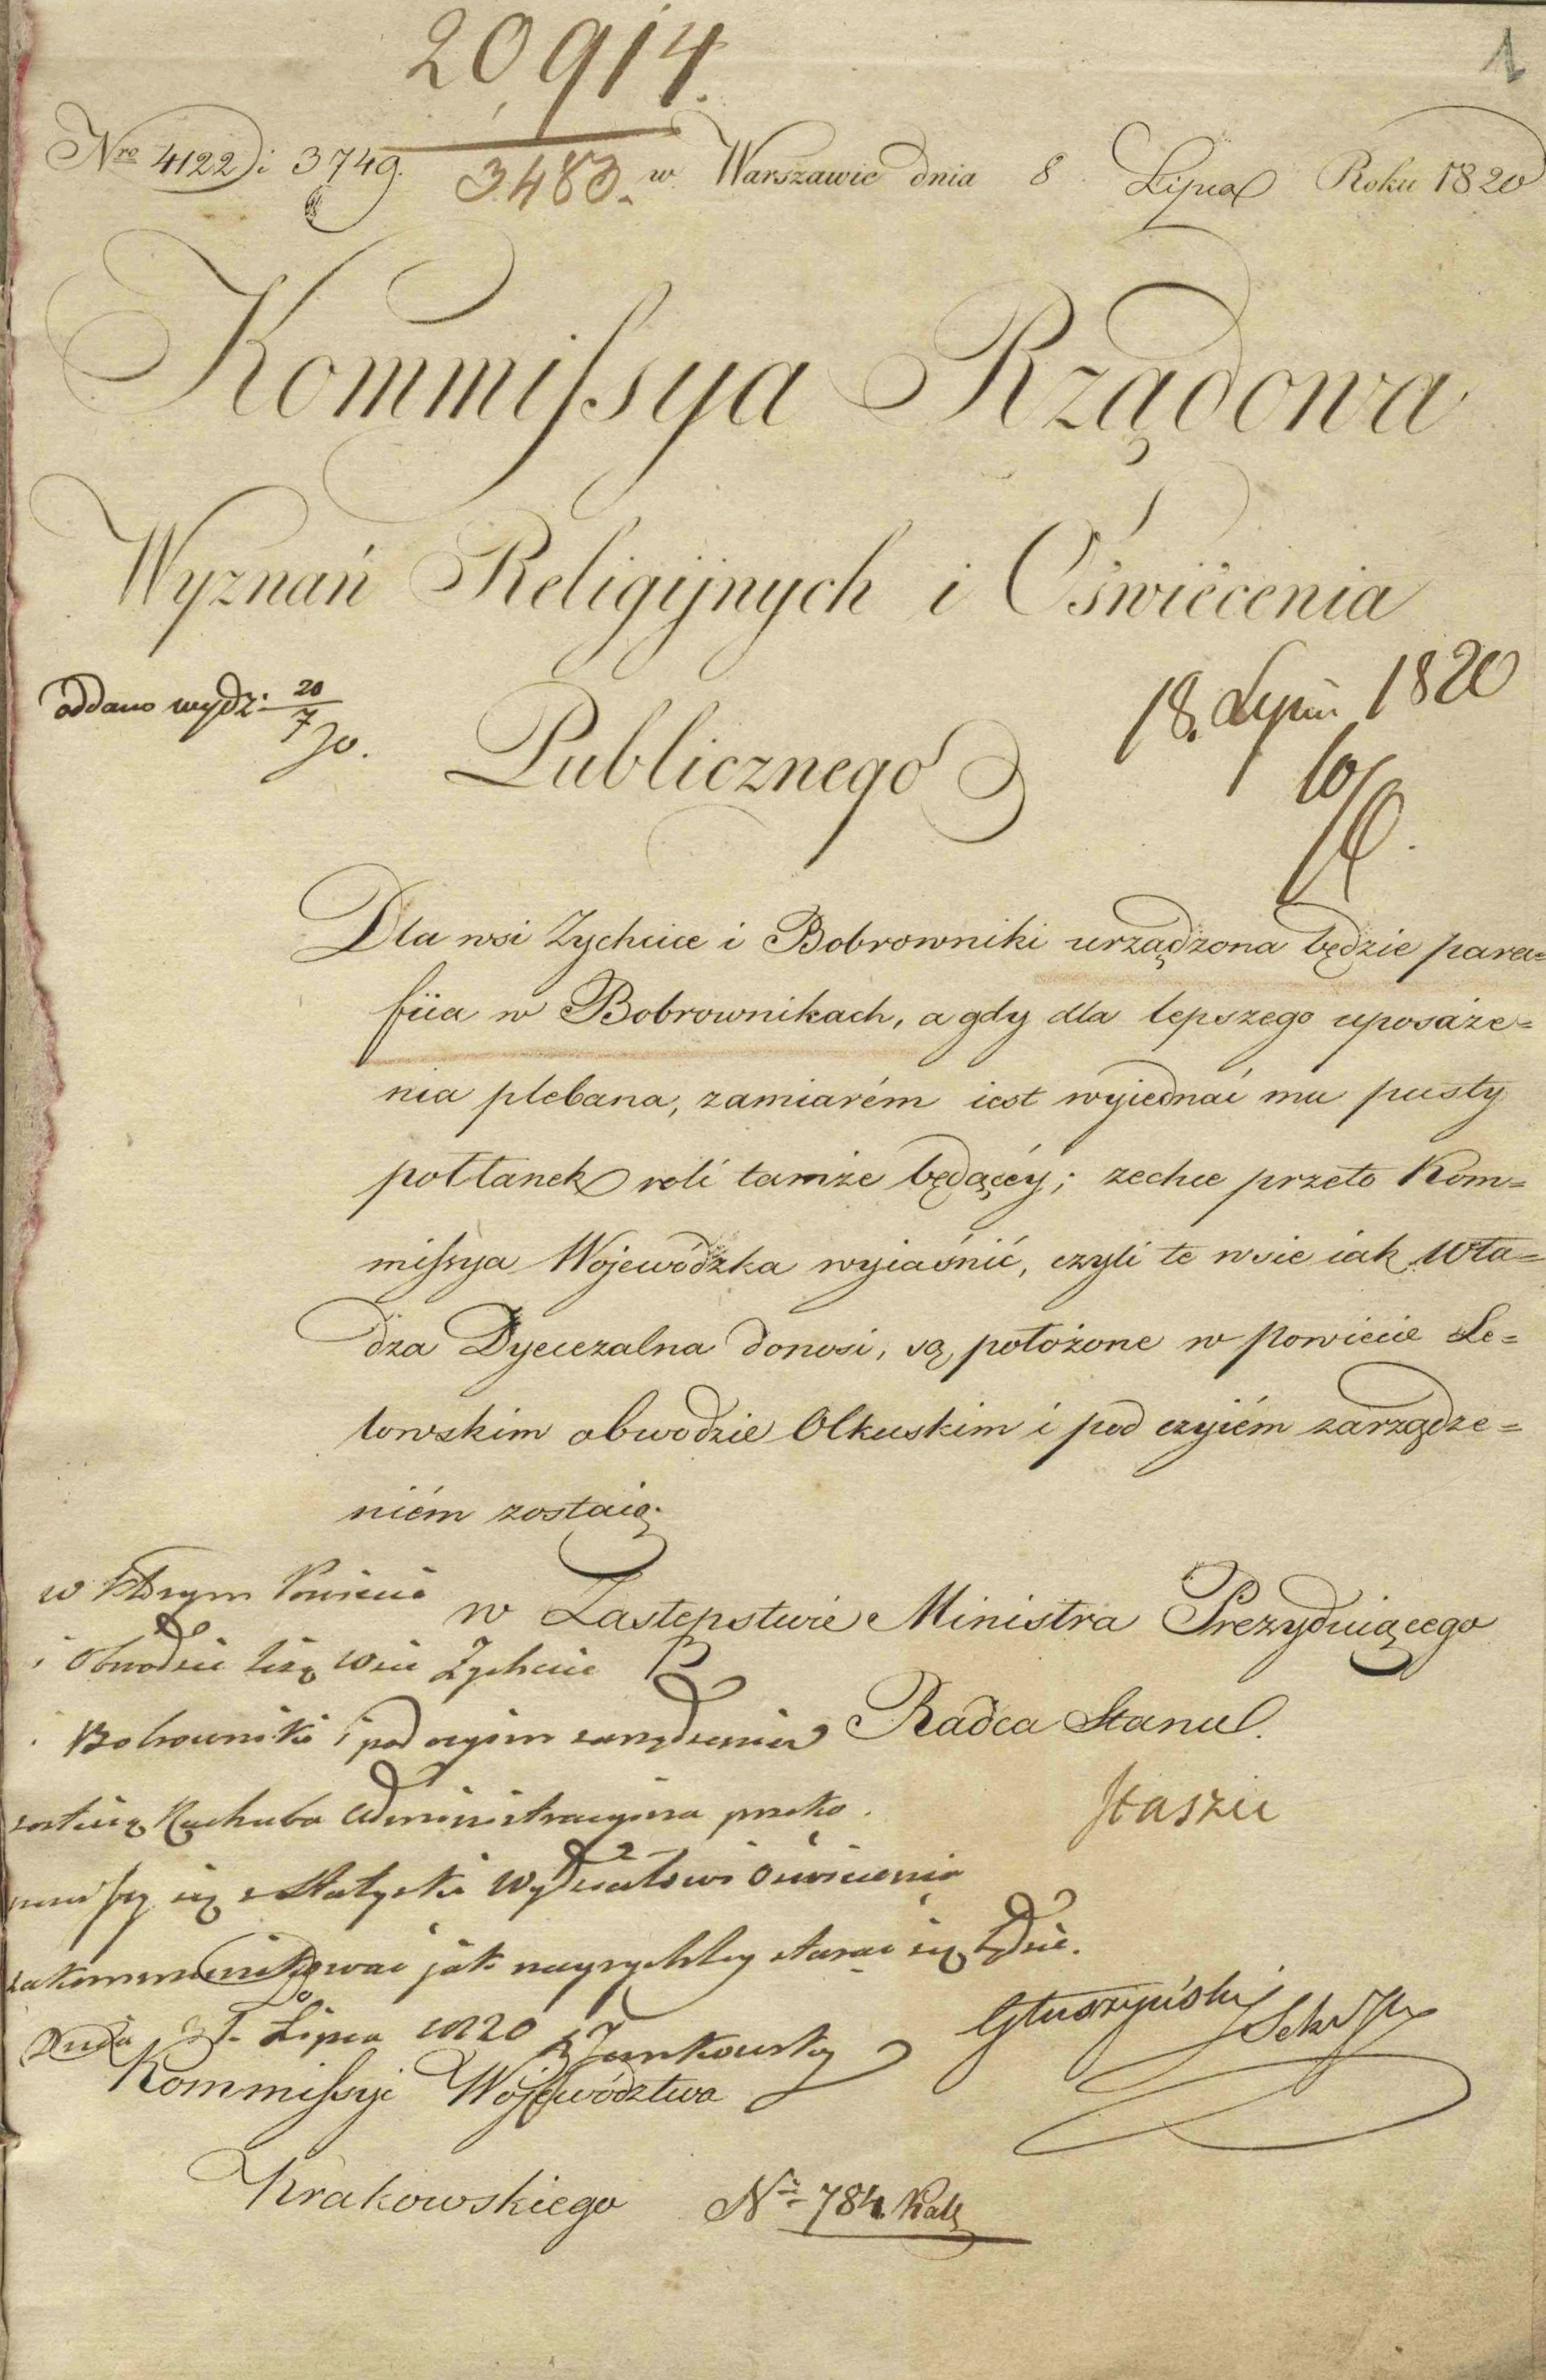 1
20914.
3483.
Nro 4122 i 3749. w Warszawie dnia 8 Lipca Roku 1820
Kommissya Rządowa
Wyznań Religijnych i Oświécenia
Publicznego
oddano wydz: 20/7 
18. Lipca 1820
Dla wsi Zychcice i Bobrowniki urządzona będzie para=
fiia w Bobrownikach, a gdy dla lepszego uposaże=
nia plebana, zamiarém iest wyiednać mu pusty
półłanek roli tamże będącéy; zechce przeto Kom=
missya Wojewódzka wyiaśnić, czyli te wsie iak Wła=
dza Dyecezalna donosi, są położone w Powiecie Le=
lowskim obwodzie Olkuskim i pod czyiém zarządze=
niém zostaią.
w Zastępstwie Ministra Prezyduiącego
Radca Stanu.
Staszic
w którym Powiecie
i Obwodzie leżą wsie Zychcice
i Bobrowniki i pod czyim zarządzeniem
zostaią Rachuba Administracyina
się Wydziałowi Oświecenia
zakommunikować jak nayrychley starać się będzie.
Lipca 1820 Jankowski
Głuszyński
Kommissyi Województwa
Krakowskiego
No 784 Kal